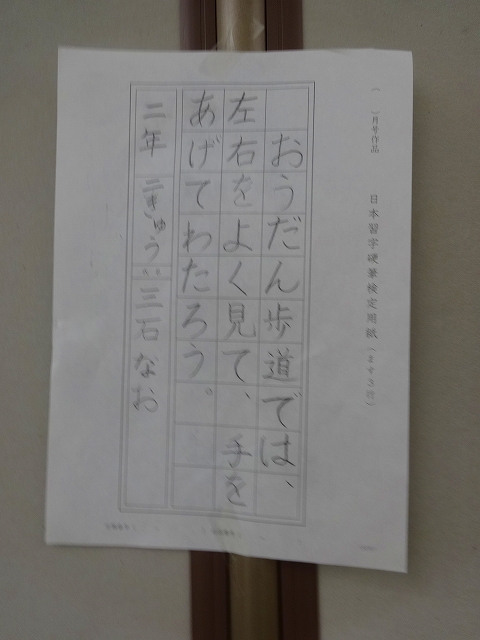 月号作品
日本習字硬筆検定用紙(ます3行)
おうだん歩道では、
左右をよく見て、手を
あげてわたろう。
二年 二きゅう 氏名 三石なお